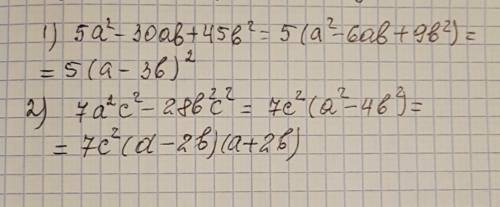 1) 5a² - 30ab + 45b² = 5(a² - 6ab + 9b²) =
= 5(a - 3b)²
2) 7a²c² - 28b²c² = 7c²(a² - 4b²) =
= 7c²(a - 2b)(a + 2b)